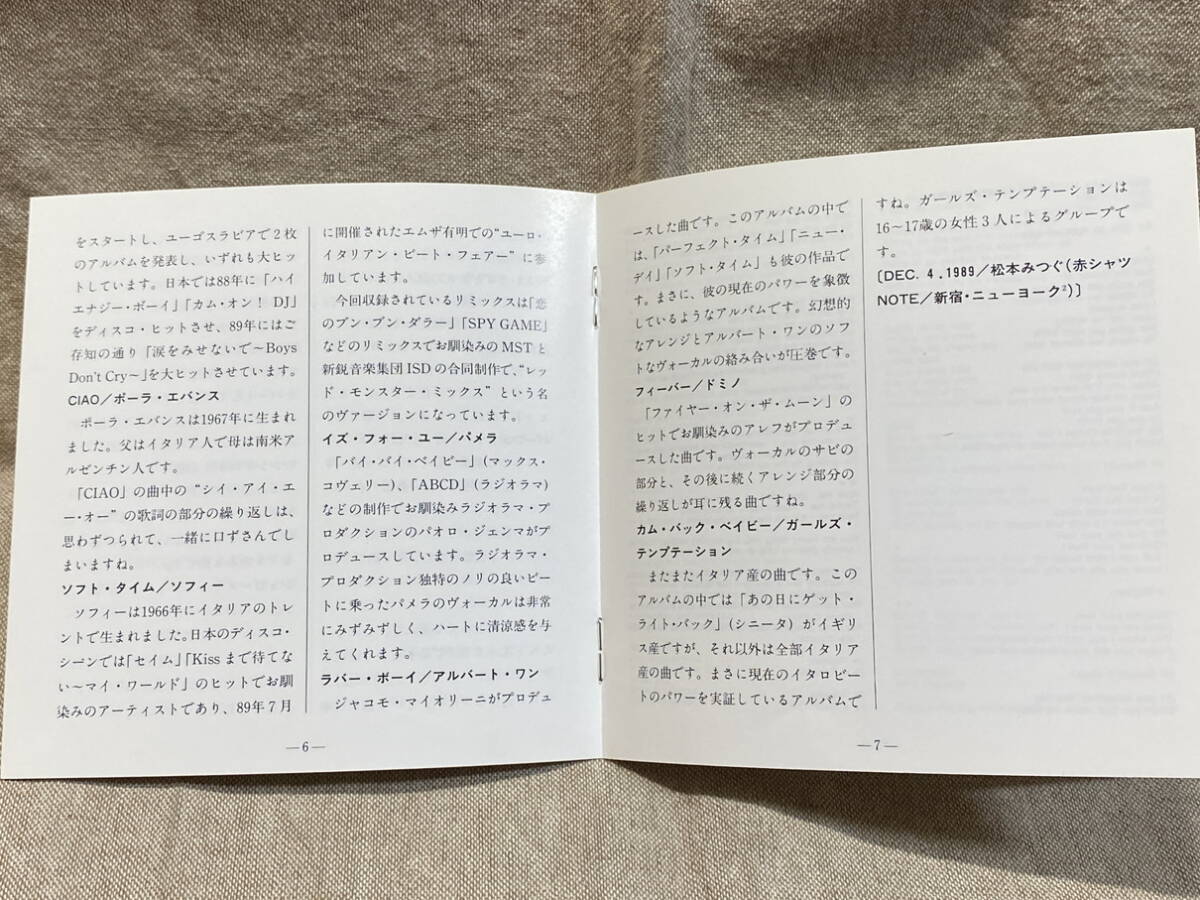 をスタートし、ユーゴスラビアで2枚
のアルバムを発表し、いずれも大ヒッ
トしています。日本では88年に「ハイ
エナジー・ボーイ」「カム・オン! DJ」
をディスコ・ヒットさせ、89年にはご
存知の通り「涙をみせないで~Boys
Don't Cry~」を大ヒットさせています。
CIAO/ポーラ・エバンス
ポーラ・エバンスは1967年に生まれ
ました。父はイタリア人で母は南米ア
ルゼンチン人です。
「CIAO」の曲中の“シイ・アイ・エ
ー・オー”の歌詞の部分の繰り返しは、
思わずつられて、一緒に口ずさんでし
まいますね。
ソフト・タイム/ソフィー
ソフィーは1966年にイタリアのトレ
ントで生まれました。日本のディスコ・
シーンでは「セイム」「Kissまで待てな
い~マイ・ワールド」のヒットでお馴
染みのアーティストであり、89年7月
に開催されたエムザ有明での“ユーロ・
イタリアン・ビート・フェアー”に参
加しています。
今回収録されているリミックスは「恋
のブン・ブン・ダラー」「SPY GAME」
などのリミックスでお馴染みのMSTと
新鋭音楽集団ISDの合同制作で、“レッ
ド・モンスター・ミックス”という名
のヴァージョンになっています。
イズ・フォー・ユー/パメラ
「バイ・バイ・ベイビー」(マックス・
コヴェリー)、「ABCD」(ラジオラマ)
などの制作でお馴染みラジオラマ・プ
ロダクションのパオロ・ジェンマがプ
ロデュースしています。ラジオラマ・
プロダクション独特のノリの良いビー
トに乗ったパメラのヴォーカルは非常
にみずみずしく、ハートに清涼感を与
えてくれます。
ラバー・ボーイ/アルバート・ワン
ジャコモ・マイオリーニがプロデュ
—6—
ースした曲です。このアルバムの中で
は、「パーフェクト・タイム」「ニュー・
デイ」「ソフト・タイム」も彼の作品で
す。まさに、彼の現在のパワーを象徴
しているようなアルバムです。幻想的
なアレンジとアルバート・ワンのソフ
トなヴォーカルの絡み合いが圧巻です。
フィーバー/ドミノ
「ファイヤー・オン・ザ・ムーン」の
ヒットでお馴染みのアレフがプロデュ
ースした曲です。ヴォーカルのサビの
部分と、その後に続くアレンジ部分の
繰り返しが耳に残る曲ですね。
カム・バック・ベイビー/ガールズ・
テンプテーション
またまたイタリア産の曲です。この
アルバムの中では「あの日にゲット・
ライト・バック」(シニータ)がイギリ
ス産ですが、それ以外は全部イタリア
産の曲です。まさに現在のイタロビー
トのパワーを実証しているアルバムで
すね。ガールズ・テンプテーションは
16~17歳の女性3人によるグループで
す。
〔DEC. 4.1989/松本みつぐ(赤シャツ
NOTE/新宿・ニューヨーク²)〕
—7—